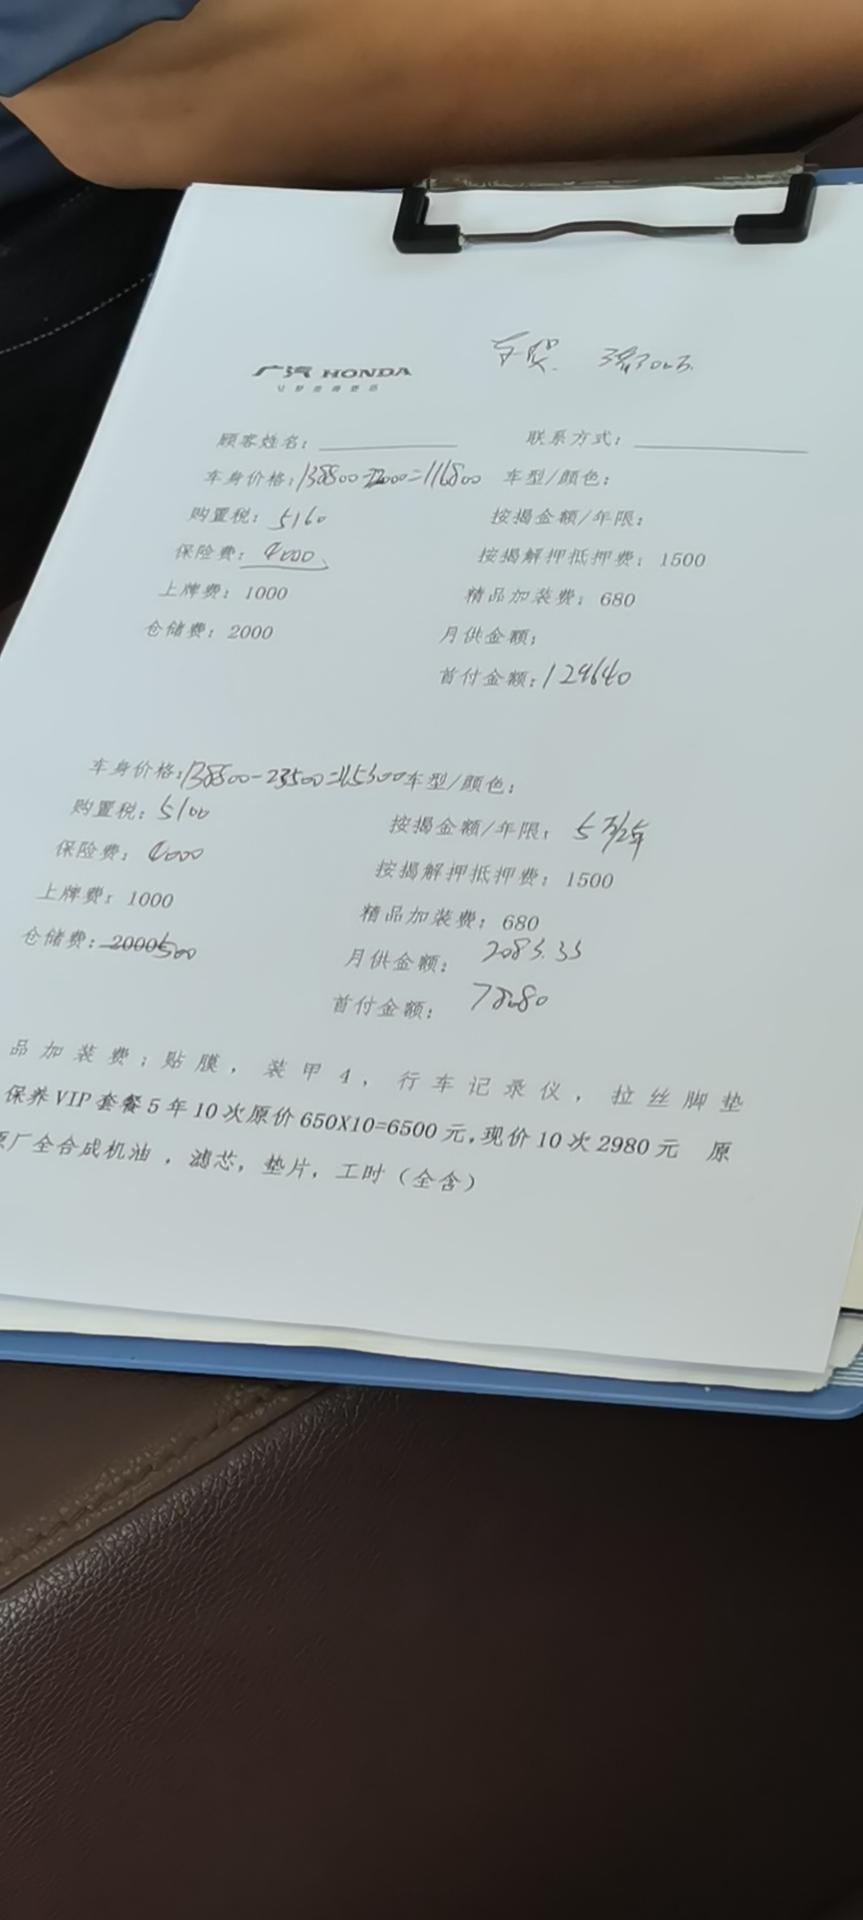 广汽 HONDA
让梦走得更远
顾客姓名： 联系方式：
车身价格：138800-22000=116800 车型/颜色：
购置税：5160 按揭金额/年限：
保险费：4000 按揭解押抵押费：1500
上牌费：1000 精品加装费：680
仓储费：2000 月供金额：
首付金额：129640
车身价格：138800-23500=115300 车型/颜色：
购置税：5100 按揭金额/年限：5万/2年
保险费：4000 按揭解押抵押费：1500
上牌费：1000 精品加装费：680
仓储费：2000 500 月供金额：2083.33
首付金额：78080
品加装费：贴膜，装甲4，行车记录仪，拉丝脚垫
保养VIP套餐5年10次原价650X10=6500元,现价10次2980元 原
原厂全合成机油，滤芯，垫片，工时（全含）